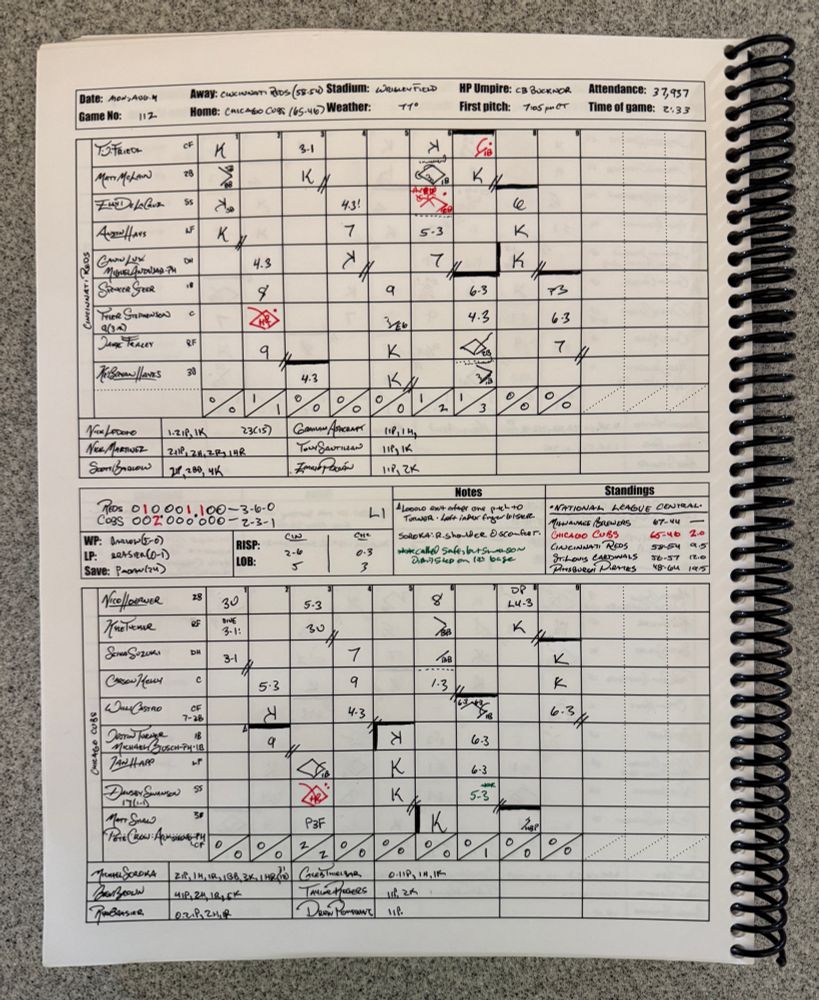 Date: MON, AUG. 4 Away: CINCINNATI REDS (58-54) Stadium: WRIGLEY FIELD HP Umpire: CB BUCKNOR Attendance: 37,937
Game No: 112 Home: CHICAGO CUBS (65-46) Weather: 77° First pitch: 7:05 PM CT Time of game: 2:33
1 2 3 4 5 6 7 8 9
CINCINNATI REDS
T.J. FRIEDL CF K 3-1 K 1B
MATT McLAIN 2B BB K 1B K
ELLY DE LA CRUZ SS K 4.3! 6
AUSTIN HAYS LF K 7 5-3 K
GAVIN LUX DH 4.3 K 7 K
MIGUEL ANDUJAR-PH
SPENCER STEER 1B 8 9 6.3 F3
TYLER STEPHENSON C HR 4.3 6.3
9(3-2)
JAKE FRALEY RF 9 K BB 7
KE'BRYAN HAYES 3B 4.3 K
0/0 1/1 0/0 0/0 0/0 1/2 1/3 0/0 0/0
NICK LODOLO 1.2IP, 1K 23(15) GRAHAM ASHCRAFT 1IP, 1H,
NICK MARTINEZ 2IP, 2H, 2R, 1HR TONY SANTILLAN 1IP, 1K
SCOTT BARLOW 2IP, 2BB, 4K EMILIO PAGÁN 1IP, 2K
REDS 010 001 100 - 3-6-0
CUBS 002 000 000 - 2-3-1
L1
WP: BARLOW (5-0)
LP: BRASIER (0-1)
Save: PAGÁN (24)
CIN CHC
RISP: 2-6 0-3
LOB: 5 3
Notes
LODOLO EXIT AFTER ONE PITCH TO
TURNER - LEFT INDEX FINGER BLISTER
SOROKA: R. SHOULDER DISCOMFORT.
CALLED SAFE, BUT SWANSON
ON 1ST BASE
Standings
• NATIONAL LEAGUE CENTRAL •
MILWAUKEE BREWERS 67-44 —
CHICAGO CUBS 65-46 2.0
CINCINNATI REDS 58-54 9.5
ST. LOUIS CARDINALS 56-57 12.0
PITTSBURGH PIRATES 48-64 19.5
1 2 3 4 5 6 7 8 9
CHICAGO CUBS
NICO HOERNER 2B 3U 5.3 8 DP L4-3
KYLE TUCKER RF DIVE 3-1! 3U BB K
SEIYA SUZUKI DH 3-1 7 BB K
CARSON KELLY C 5.3 9 1.3 K
WILLI CASTRO CF K 4.3 1B 6.3
7-2B
JUSTIN TURNER 1B 9 K 6.3
MICHAEL BUSCH-PH-1B
IAN HAPP LF 1B K 6.3
DANSBY SWANSON SS HR K 5-3
17(1-1)
MATT SHAW 3B P3F K HBP
PETE CROW-ARMSTRONG-PH CF
0/0 0/0 2/2 0/0 0/0 0/0 0/1 0/0 0/0
MICHAEL SOROKA 2IP, 1H, 1R, 1BB, 3K, 1HR CALEB THIELBAR 0.1IP, 1H, 1K
BEN BROWN 4IP, 2H, 1R, 5K TAYLOR ROGERS 1IP, 2K
RYAN BRASIER 0.2IP, 2H, 1R DREW POMERANZ 1IP.